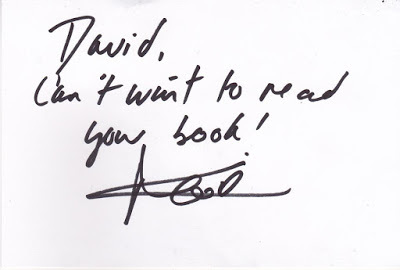 David,
Can't wait to read
your book!